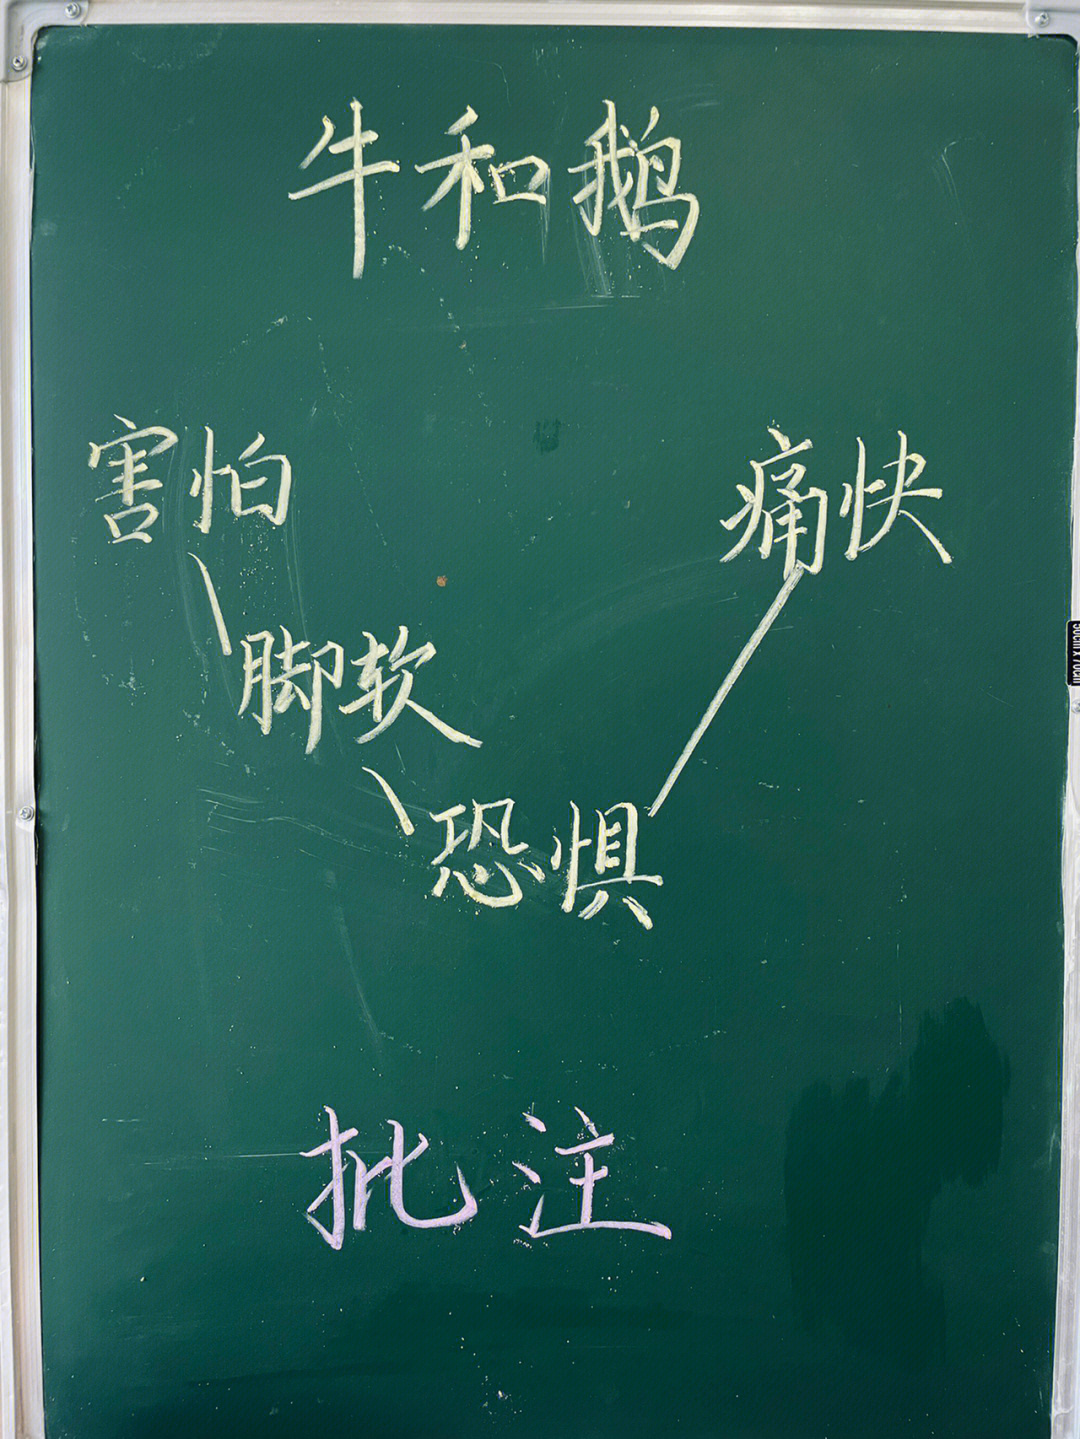 牛和鹅
害怕
痛快
脚软
恐惧
批注
50cm x 70cm